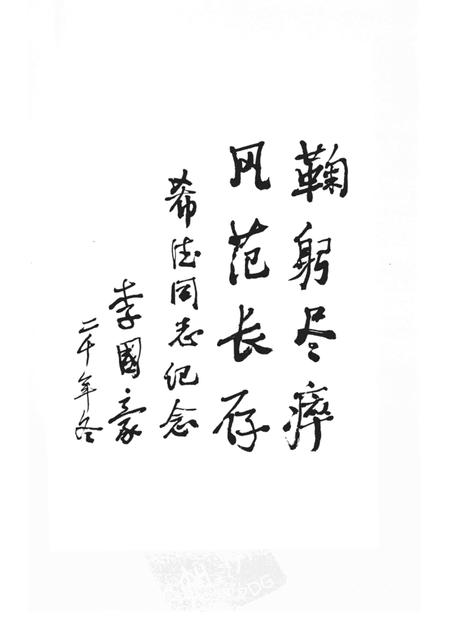 鞠躬尽瘁
风范长存
希德同志纪念
李國豪
二千年冬